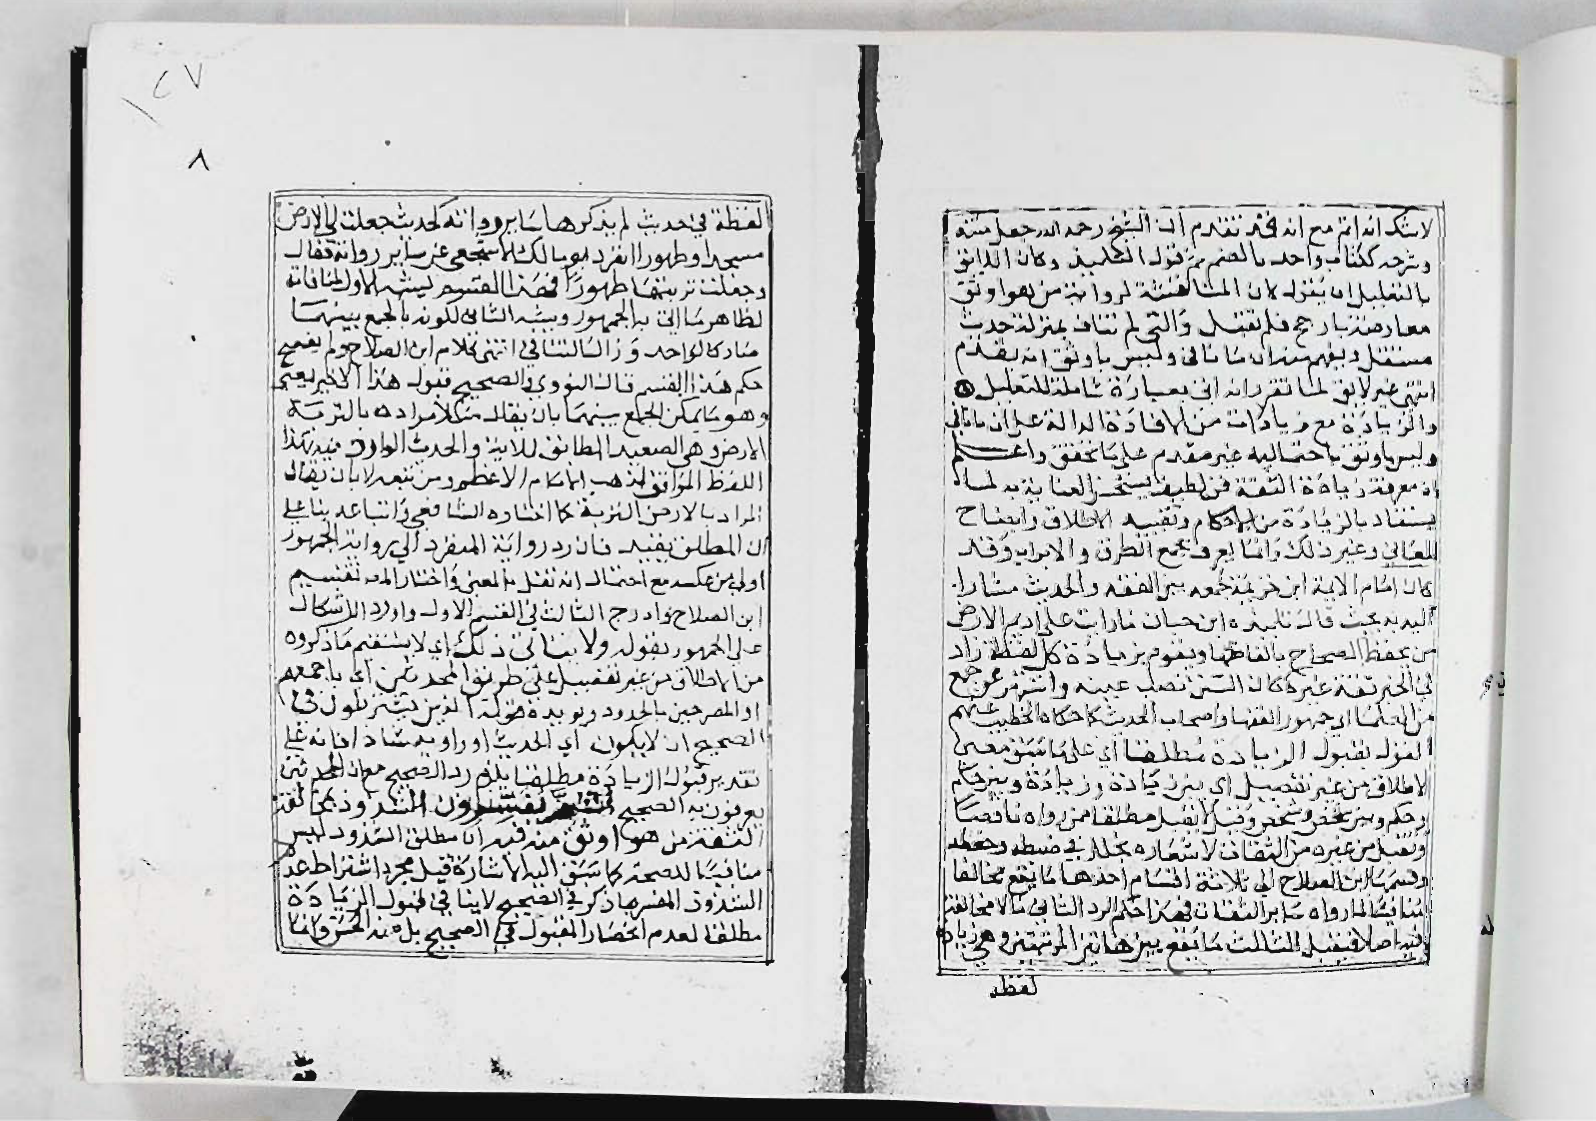 لاشك انه اتم مع انه قد تقدم ان الشيخ رحمه الله جعل متنه
وشرحه ككتاب واحد بالضم ثم قوله وكان اللايق
بالتعليل ان يقول لان المنافية لرواية من هو اوثق
معارضة بارجح فلم تقبل والتي لم تناف بمنزلة حديث
مستقل ويفهم منه ان ما نافى وليس باوثق انه يقدم
انتهى غير لايق لما تقرر انه اتى بعبارة شاملة للتعليل
والزيادة مع زيادات من الافادة الدالة على ان ما نافى
وليس باوثق باحتماليه غير مقدم على ما تحقق واعلم
ان معرفة زيادة الثقة فن لطيف يستحسن العناية به لما
يستفاد بالزيادة من الاحكام وتقييد الاطلاق وايضاح
المعاني وغير ذلك وانما يعرف بجمع الطرق والابواب وقد
كان امام الايمة ابن خزيمة لجمعه بين الفقه والحديث مشارا
اليه به بحيث قال تلميذه ابن حبان ما رايت على اديم الارض
من يحفظ الصحاح بالفاظها ويقوم بزيادة كل لفظة زاد
في الخبر ثقة غيره كان السنن نصب عينيه واشتهر عن جمع
من العلما اي جمهور الفقها واصحاب الحديث كما حكاه الخطيب عنهم
القول بقبول الزيادة مطلقا اي على ما سبق معنى
الاطلاق من غير تفصيل اي بين زيادة وزيادة وبين حكم
وحكم وبين شخص وشخص وقيل لا يقبل مطلقا ممن رواه ناقصا
وتقبل من غيره من الثقات لاشعاره بخلل في ضبطه وحفظه
وقسمها ابن الصلاح الى ثلاثة اقسام احدها ما يقع مخالفا
منافيا لما رواه ساير الثقات فهذا حكم الرد الثاني ما لا مخالفة
فيه اصلا فيقبل الثالث ما يقع بين هاتين المرتبتين وهي زيادة
لفظة
لفظة في حديث لم يذكرها ساير رواته كحديث جعلت لي الارض
مسجدا وطهورا انفرد ابو مالك الاشجعي عن ساير رواته فقال
وجعلت تربتها طهورا فهذا القسم يشبه الاول لمنافاته
لظاهر ما اتى به الجمهور ويشبه الثاني لكونه بالجمع بينهما
صار كالواحد وزال التنافي انتهى كلام ابن الصلاح ولم يفصح
حكم هذا القسم قال النووي والصحيح قبول هذا الاخير يعني
وهو ما يمكن الجمع بينهما بان يقال مثلا مراده بالتربة
الارض وهي الصعيد المطابق للاية والحديث الوارد فيه بهذا
اللفظ الموافق لمذهب الامام الاعظم ومن تبعه لا بان يقال
المراد بالارض التربة كما اختاره الشافعي واتباعه بنا على
ان المطلق يقيد فان رد رواية المنفرد الى رواية الجمهور
اولى من عكسه مع احتمال انه نقل بالمعنى واختار المص تقسيم
ابن الصلاح وادرج الثالث في القسم الاول واورد الاشكال
على الجمهور بقوله ولا يتاتى ذلك اي لا يستقيم ما ذكروه
من الاطلاق من غير تفصيل على طريق المحدثين اي باجمعهم
او المصرحين بالحدود ويؤيده قوله الذين يشترطون في
الصحيح ان لا يكون اي الحديث او راويه شاذا فانه على
تقدير قبول الزيادة مطلقا يلزم رد الصحيح مع ان المحدثين
يعرفون به الصحيح ثم يفسرون الشذوذ بمخالفة
الثقة من هو اوثق منه قيد اذ مطلق الشذوذ ليس
منافيا للصحة كما سبق اليه الاشارة قيل مجرد اشتراط عدم
الشذوذ المفسر بما ذكر في الصحيح لا ينافي قبول الزيادة
مطلقا لعدم انحصار القبول في الصحيح بل منه الحسن وانما